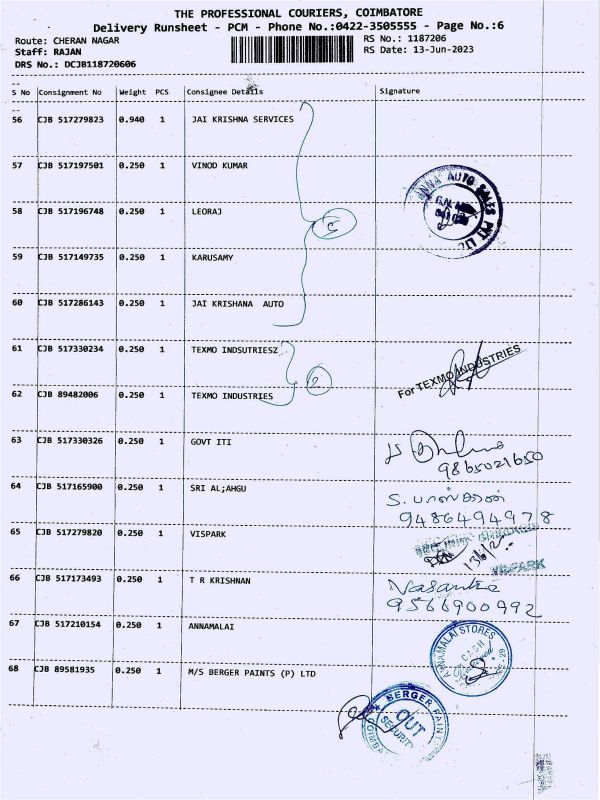 THE PROFESSIONAL COURIERS, COIMBATORE
Delivery Runsheet - PCM - Phone No.:0422-3505555 - Page No.:6
Route: CHERAN NAGAR RS No.: 1187206
Staff: RAJAN RS Date: 13-Jun-2023
DRS No.: DCJB118720606
S No Consignment No Weight PCS Consignee Details Signature
56 CJB 517279823 0.940 1 JAI KRISHNA SERVICES
57 CJB 517197501 0.250 1 VINOD KUMAR
58 CJB 517196748 0.250 1 LEORAJ
5
59 CJB 517149735 0.250 1 KARUSAMY
60 CJB 517286143 0.250 1 JAI KRISHANA AUTO
61 CJB 517330234 0.250 1 TEXMO INDSUTRIESZ
2
For TEXMO INDUSTRIES
62 CJB 89482006 0.250 1 TEXMO INDUSTRIES
63 CJB 517330326 0.250 1 GOVT ITI
9865021650
64 CJB 517165900 0.250 1 SRI AL;AHGU
S. பாஸ்கரன்
9486494978
65 CJB 517279820 0.250 1 VISPARK
13/6/2
VISPARK
66 CJB 517173493 0.250 1 T R KRISHNAN
Vasantha
9566900992
67 CJB 517210154 0.250 1 ANNAMALAI
ANNAMALAI STORES
68 CJB 89581935 0.250 1 M/S BERGER PAINTS (P) LTD
BERGER PAINT
OUT
SECURITY